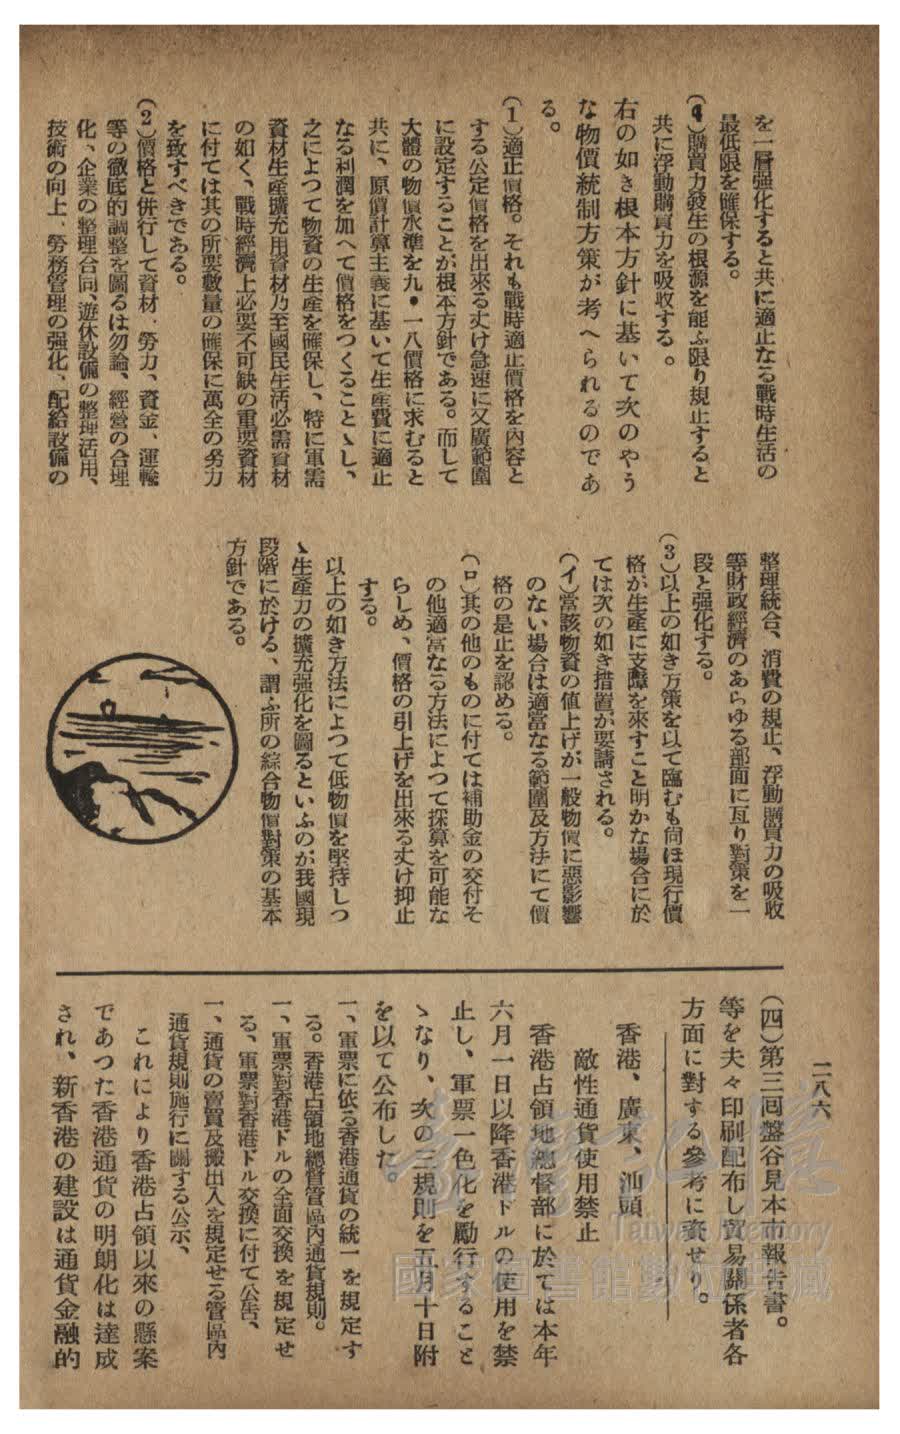 を一層强化すると共に適正なる戰時生活の
最低限を確保する。
(4)購買力發生の根源を能ふ限り規止すると
共に浮動購買力を吸收する。
右の如き根本方針に基いて次のやう
な物價統制方策が考へられるのであ
る。
(1)適正價格。それも戰時適正價格を內容と
する公定價格を出來る丈け急速に又廣範圍
に設定することが根本方針である。而して
大體の物價水準を九・一八價格に求むると
共に、原價計算主義に基いて生產費に適正
なる利潤を加へて價格をつくることゝし、
之によつて物資の生產を確保し、特に軍需
資材生產擴充用資材乃至國民生活必需資材
の如く、戰時經濟上必要不可缺の重要資材
に付ては其の所要數量の確保に萬全の努力
を致すべきである。
(2)價格と併行して資材、勞力、資金、運輸
等の徹底的調整を圖るは勿論、經營の合理
化、企業の整理合同、遊休設備の整理活用、
技術の向上、勞務管理の强化、配給設備の
整理統合、消費の規正、浮動購買力の吸收
等財政經濟のあらゆる部面に亙り對策を一
段と强化する。
(3)以上の如き方策を以て臨むも尙ほ現行價
格が生產に支障を來すこと明かな場合に於
ては次の如き措置が要請される。
(イ)當該物資の値上げが一般物價に惡影響
のない場合は適當なる範圍及方法にて價
格の是正を認める。
(ロ)其の他のものに付ては補助金の交付そ
の他適當なる方法によつて採算を可能な
らしめ、價格の引上げを出來る丈け抑止
する。
以上の如き方法によつて低物價を堅持しつ
ゝ生產力の擴充强化を圖るといふのが我國現
段階に於ける、謂ふ所の綜合物價對策の基本
方針である。
二八六
(四)第三回盤谷見本市報告書。
等を夫々印刷配布し貿易關係者各
方面に對する參考に資せり。
香港、廣東、汕頭
敵性通貨使用禁止
香港占領地總督部に於ては本年
六月一日以降香港ドルの使用を禁
止し、軍票一色化を勵行すること
ゝなり、次の三規則を五月十日附
を以て公布した。
一、軍票に依る香港通貨の統一を規定す
る。香港占領地總督管區內通貨規則。
一、軍票對香港ドルの全面交換を規定せ
る、軍票對香港ドル交換に付て公告、
一、通貨の賣買及搬出入を規定せる管區內
通貨規則施行に關する公示、
これにより香港占領以來の懸案
であつた香港通貨の明朗化は達成
され、新香港の建設は通貨金融的
臺灣記憶
Taiwan Memory
國家圖書館數位典藏